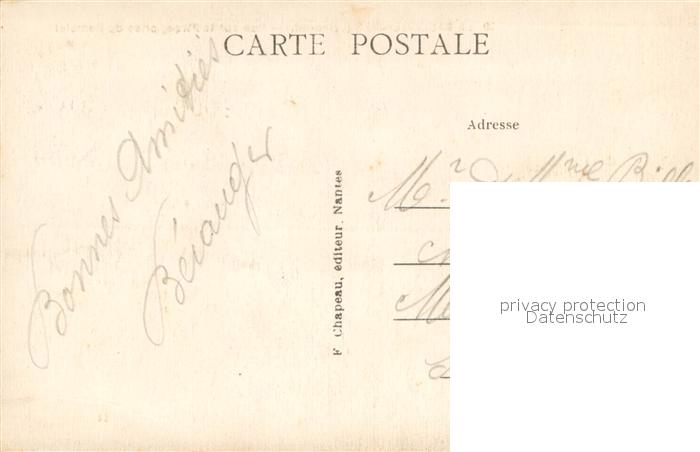 CARTE POSTALE
Bonnes Amitiés
Béranger
F. Chapeau, éditeur. Nantes
Adresse
Mr & Mme
privacy protection
Datenschutz